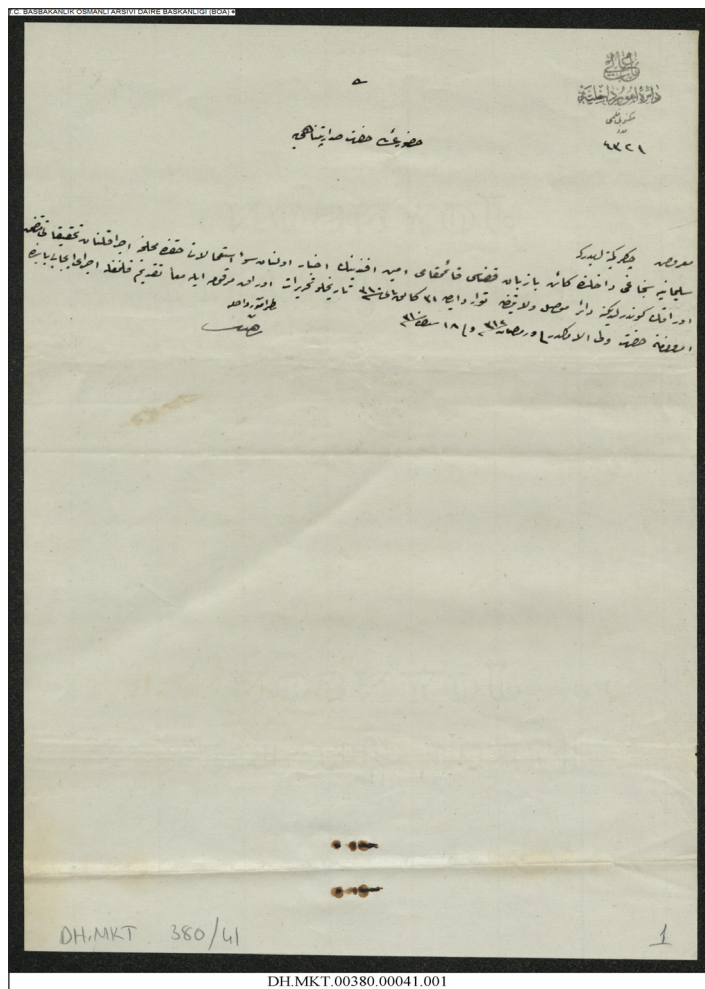 T.C. BASBAKANLIK OSMANLI ARSIVI DAIRE BASKANLIGI (BOA)
باب عالی
دائرۀ امور داخلیه
مکتوبی قلمی
عدد
٤٣٢١
حضور عالئ حضرت صدارتپناهی
معروض چاکر کمینه لریدر که
سلیمانیه سنجاغی داخلنده کائن بازیان قضاسی قائمقامی امین افندینك اخبار اولنان سوء استعمالات حقنده محلنجه اجرا قلنان تحقیقاتی متضمن
اوراقك کوندرلدیکنه دائر موصل ولایتندن توارد ایدن ٣١ کانون ثانی تاریخلو تحریرات اوراق مرقومه ایله معاً تقدیم قلنمغله اجرای ایجابی بابنده
امر و فرمان حضرت ولی الامرکدر فی رمضان سنه ٣١٢ و فی ١٨ شباط سنه ٣١٠
DH.MKT 380/41
1
DH.MKT.00380.00041.001